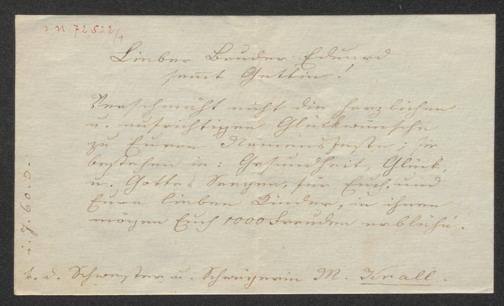 I N 72522/1
Lieber Bruder Eduard
sammt Gattin!
Verschmäht nicht die herzlichen
u. aufrichtigen Glückwünsche
zu Euren Namensfeste; sie
bestehen in: Gesundheit, Glück,
u. Gottes Seegen, für Euch und
Eure lieben Kinder, in ihnen
mögen Euch 1000 Freuden erblühn.
d. Schwester u. Schwägerin M. Krall.